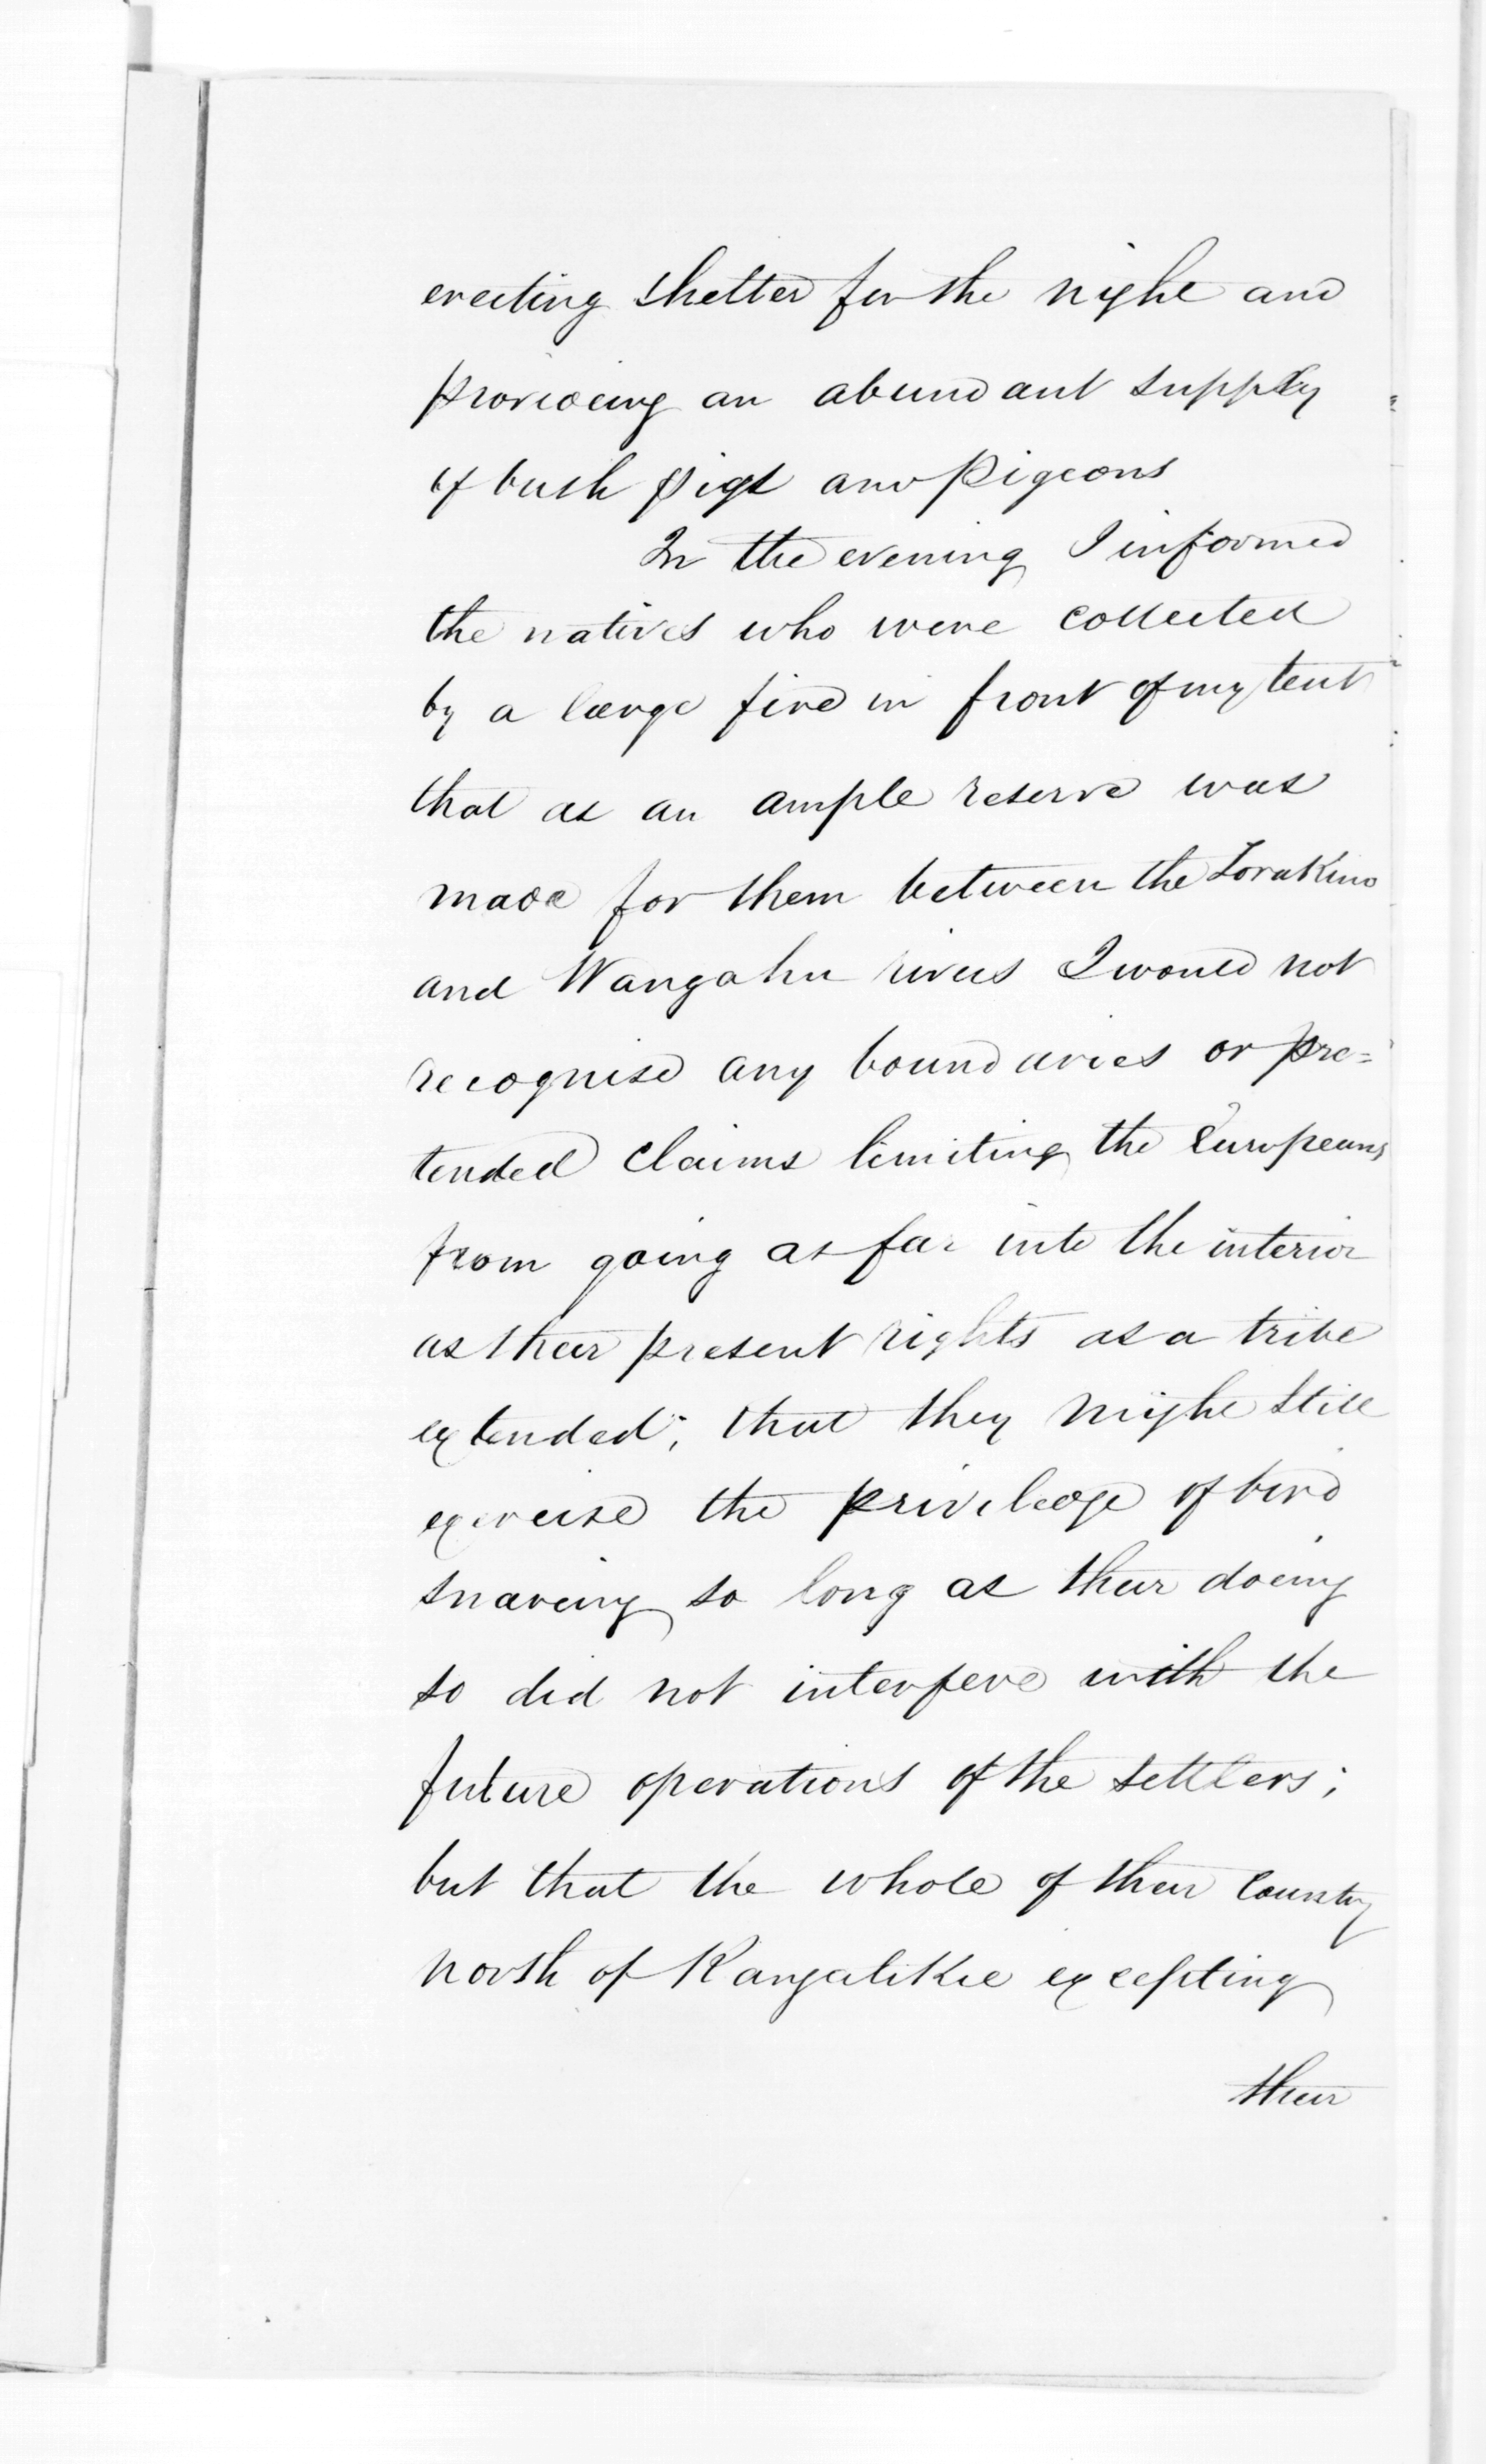 erecting shelter for the night and
providing an abundant supply
of bush pigs and Pigeons
In the evening I informed
the natives who were collected
by a large fire in front of my tent
that as an ample reserve was
made for them between the Torakino
and Wangahu rivers I would not
recognise any boundaries or pre=
tended claims limiting the Europeans
from going as far into the interior
as their present rights as a tribe
extended; that they might still
exercise the priviledge of bird
snaring so long as their doing
so did not interfere with the
future operations of the settlers;
but that the whole of their country
north of Rangatikie excepting
their